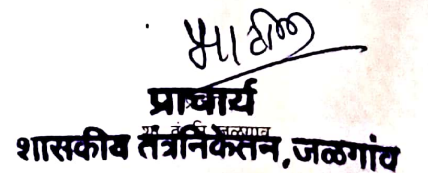 प्राचार्य
शासकीय तंत्रनिकेतन, जळगांव